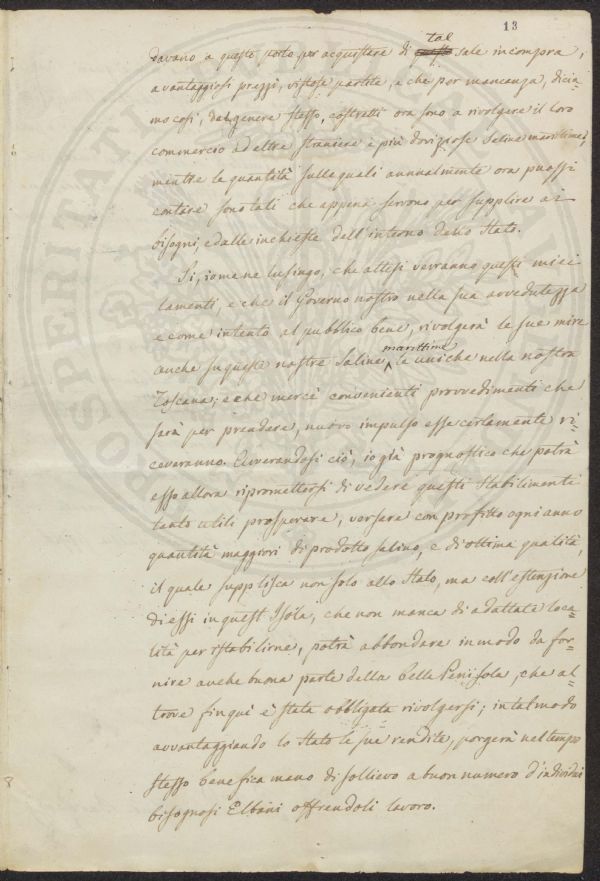 13
davano a questo porto per acquistare di tal sale in compra,
a vantaggiosi prezzi, vistose partite, e che per mancanza, dicia-
mo così, del genere stesso, costretti ora sono a rivolgere il loro
commercio ad altre straniere e più doviziose Saline marittime;
mentre le quantità sulle quali annualmente ora puossi
contare sono tali che appena servono per supplire ai
bisogni, e dalle inchieste dell'interno dello Stato.
Sì, io me ne lusingo, che attesi verranno questi miei
lamenti, e che il Governo nostro nella sua avvedutezza
e come intento al pubblico bene, rivolgerà le sue mire
anche su queste nostre Saline marittime le uniche nella nostra
Toscana; e che mercè convenienti provvedimenti che
sarà per prendere, nuovo impulso esse certamente ri-
ceveranno. Avverandosi ciò, io già prognostico che potrà
esso allora ripromettersi di vedere questi Stabilimenti
tanto utili prosperare, versare con profitto ogni anno
quantità maggiori di prodotto salino, e di ottima qualità,
il quale supplisca non solo allo Stato, ma coll'estenzione
di essi in quest'Isola, che non manca di adattate loca-
lità per istabilirne, potrà abbondare in modo da for-
nire anche buona parte della bella Penisola, che al-
trove finquì è stata obbligata rivolgersi; in tal modo
avvantaggiando lo Stato le sue rendite, porgerà nel tempo
stesso benefica mano di sollievo a buon numero d'individui
bisognosi Elbani offrendoli lavoro.
PROSPERITATI